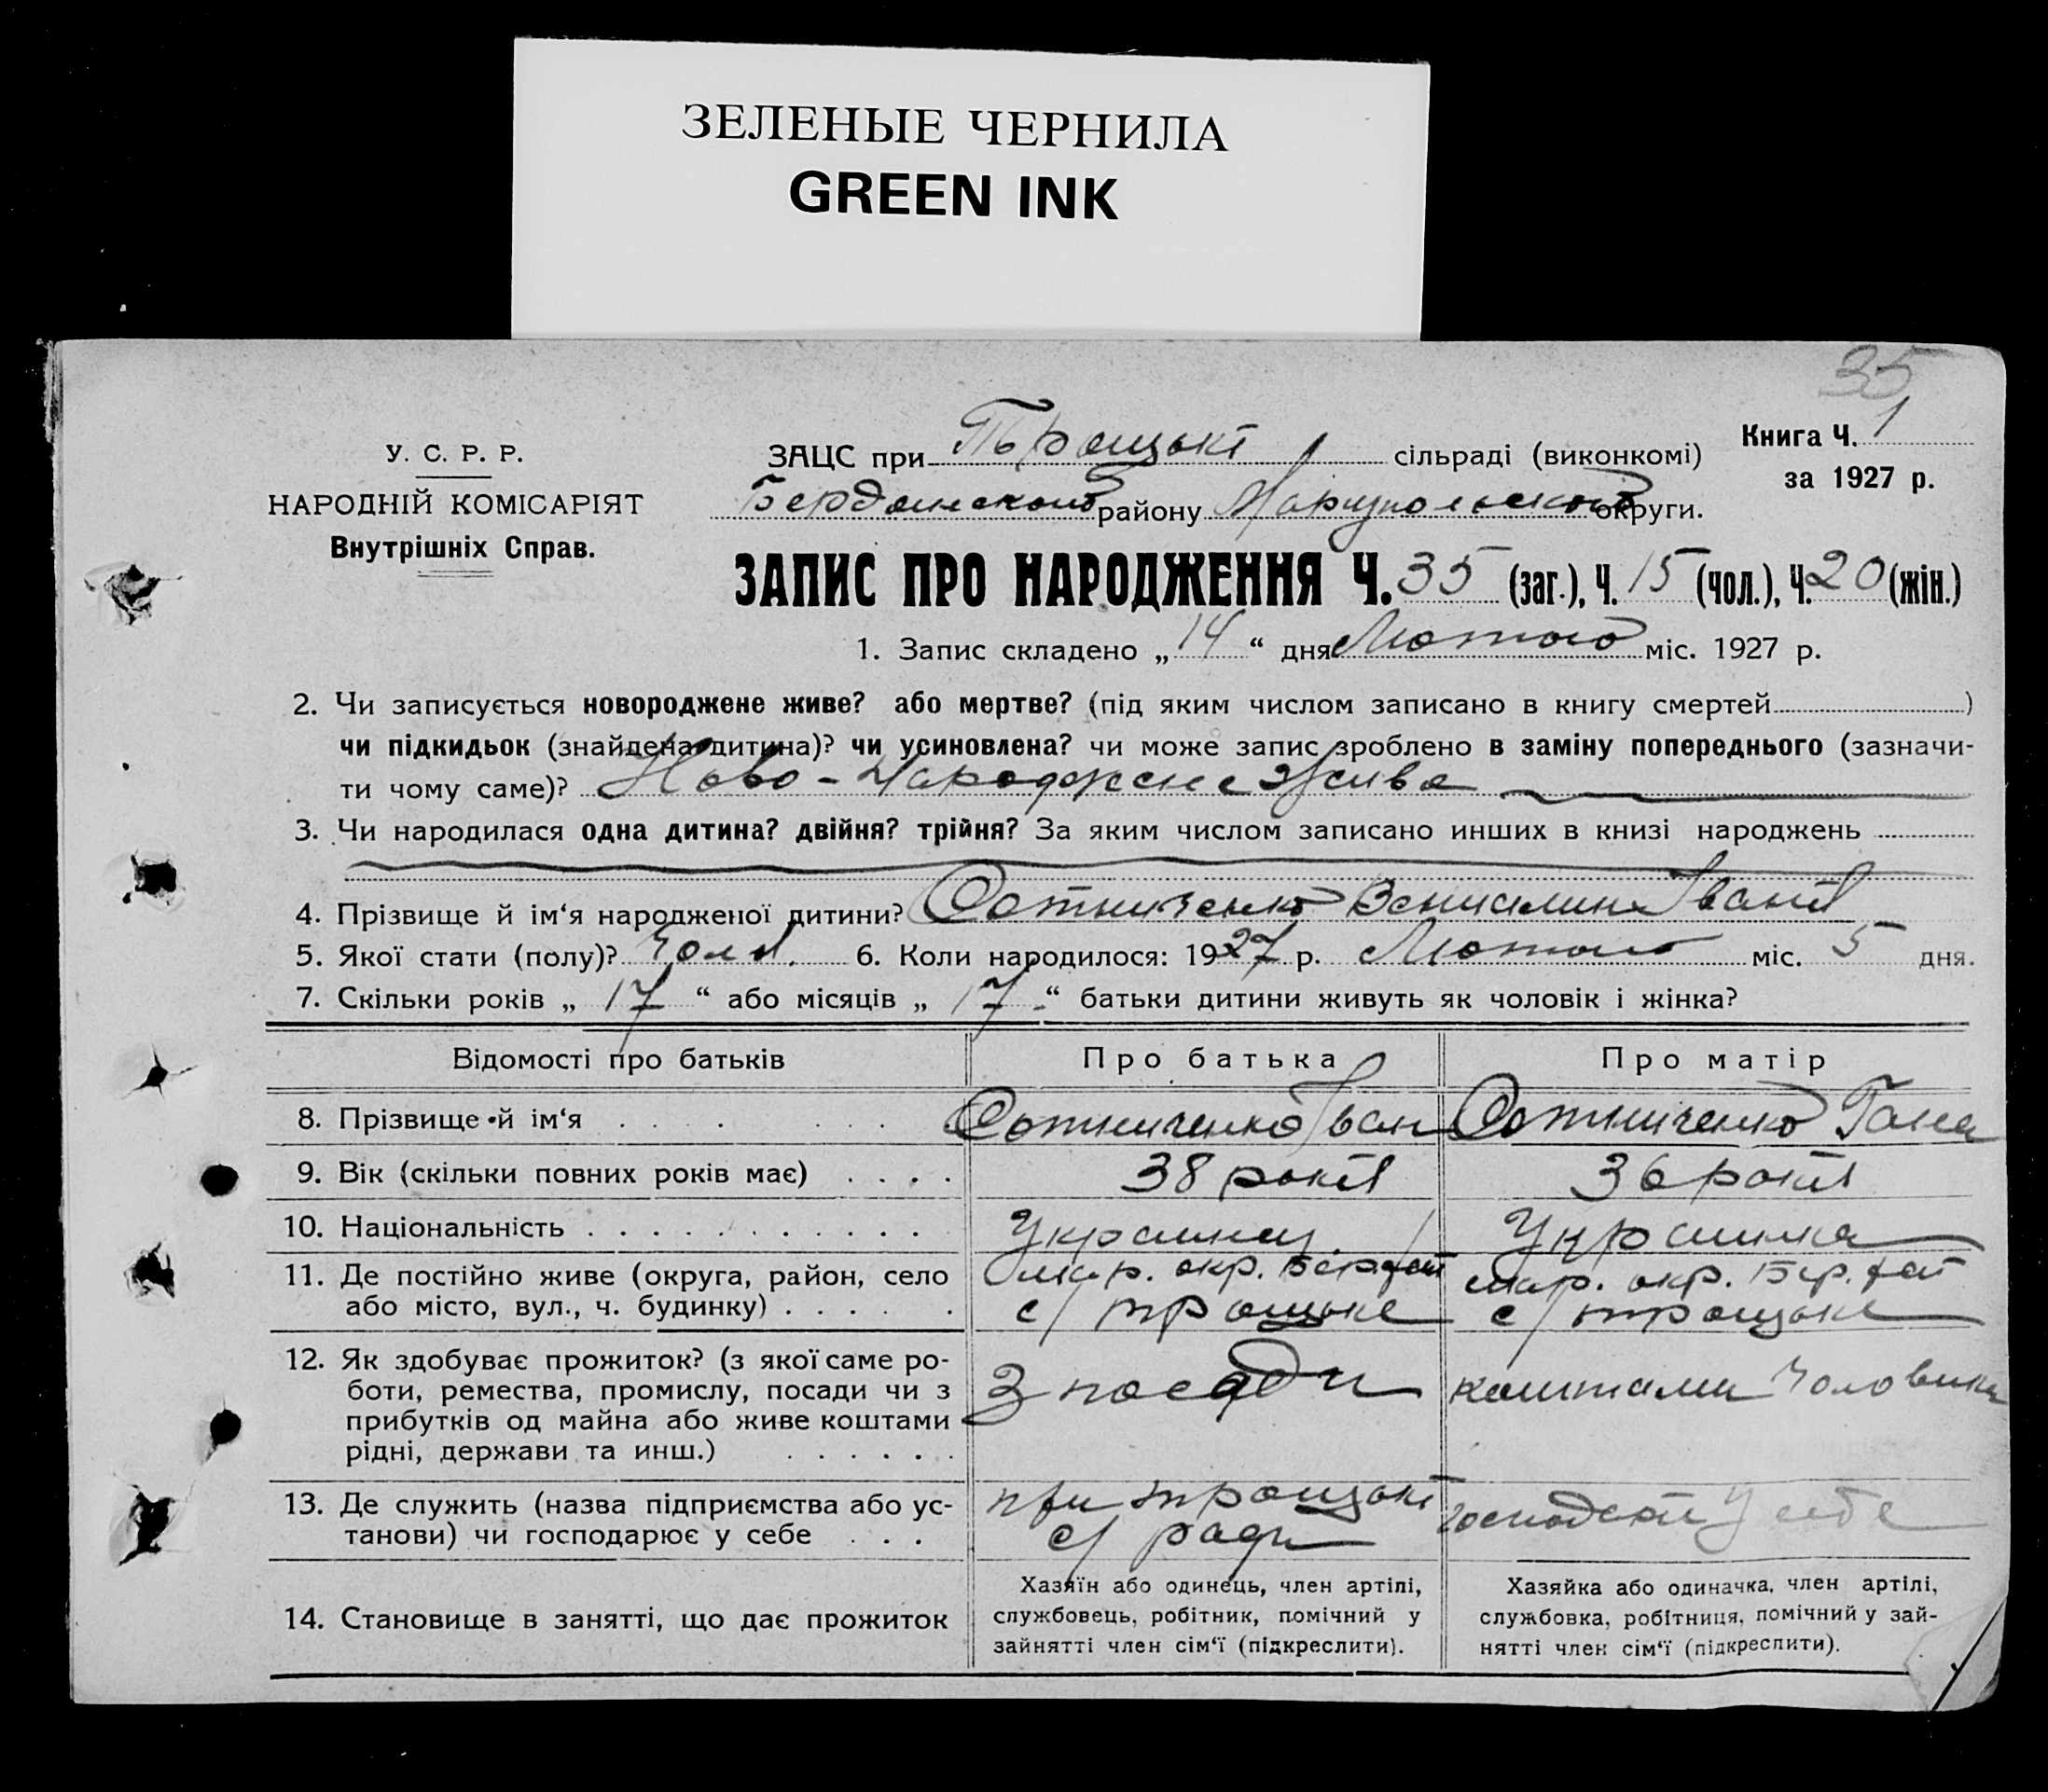 ЗЕЛЕНЫЕ ЧЕРНИЛА
GREEN INK
35
У. С. Р. Р.
НАРОДНІЙ КОМІСАРІЯТ
Внутрішніх Справ.
Книга Ч. 1
за 1927 р.
ЗАЦС при Троцькі сільраді (виконкомі)
Бердянского району Маріупольского округи.
ЗАПИС ПРО НАРОДЖЕННЯ Ч. 35 (заг.), Ч. 15 (чол.), Ч. 20 (жін.)
1. Запис складено „ 14 “ дня Лютого міс. 1927 р.
2. Чи записується новороджене живе? або мертве? (під яким числом записано в книгу смертей )
чи підкидьок (знайдена дитина)? чи усиновлена? чи може запис зроблено в заміну попереднього (зазначи-
ти чому саме)? Ново-Народжене Жива
3. Чи народилася одна дитина? двійня? трійня? За яким числом записано инших в книзі народжень
4. Прізвище й ім‘я народженої дитини? Сотниченко Іван
5. Якої стати (полу)? Чол. 6. Коли народилося: 1927 р. Лютого міс. 5 дня.
7. Скільки років „ 17 “ або місяців „ 17 “ батьки дитини живуть як чоловік і жінка?
Відомості про батьків
Про батька
Про матір
8. Прізвище й ім‘я
Сотниченко Іван
Сотниченко Гана
9. Вік (скільки повних років має)
38 років
36 років
10. Національність
Украинец
Украинка
11. Де постійно живе (округа, район, село
або місто, вул., ч. будинку)
Мар. окр. Берд.
с/ Троцьке
Мар. окр. Бер.
с/ Троцьке
12. Як здобуває прожиток? (з якої саме ро-
боти, ремества, промислу, посади чи з
прибутків од майна або живе коштами
рідні, держави та инш.)
З посади
коштами Чоловика
13. Де служить (назва підприємства або ус-
танови) чи господарює у себе
при Троцькі
с/ ради
У себе
14. Становище в занятті, що дає прожиток
Хазяїн або одинець, член артілі,
службовець, робітник, помічний у
зайнятті член сім‘ї (підкреслити).
Хазяйка або одиначка, член артілі,
службовка, робітниця, помічний у зай-
нятті член сім‘ї (підкреслити).